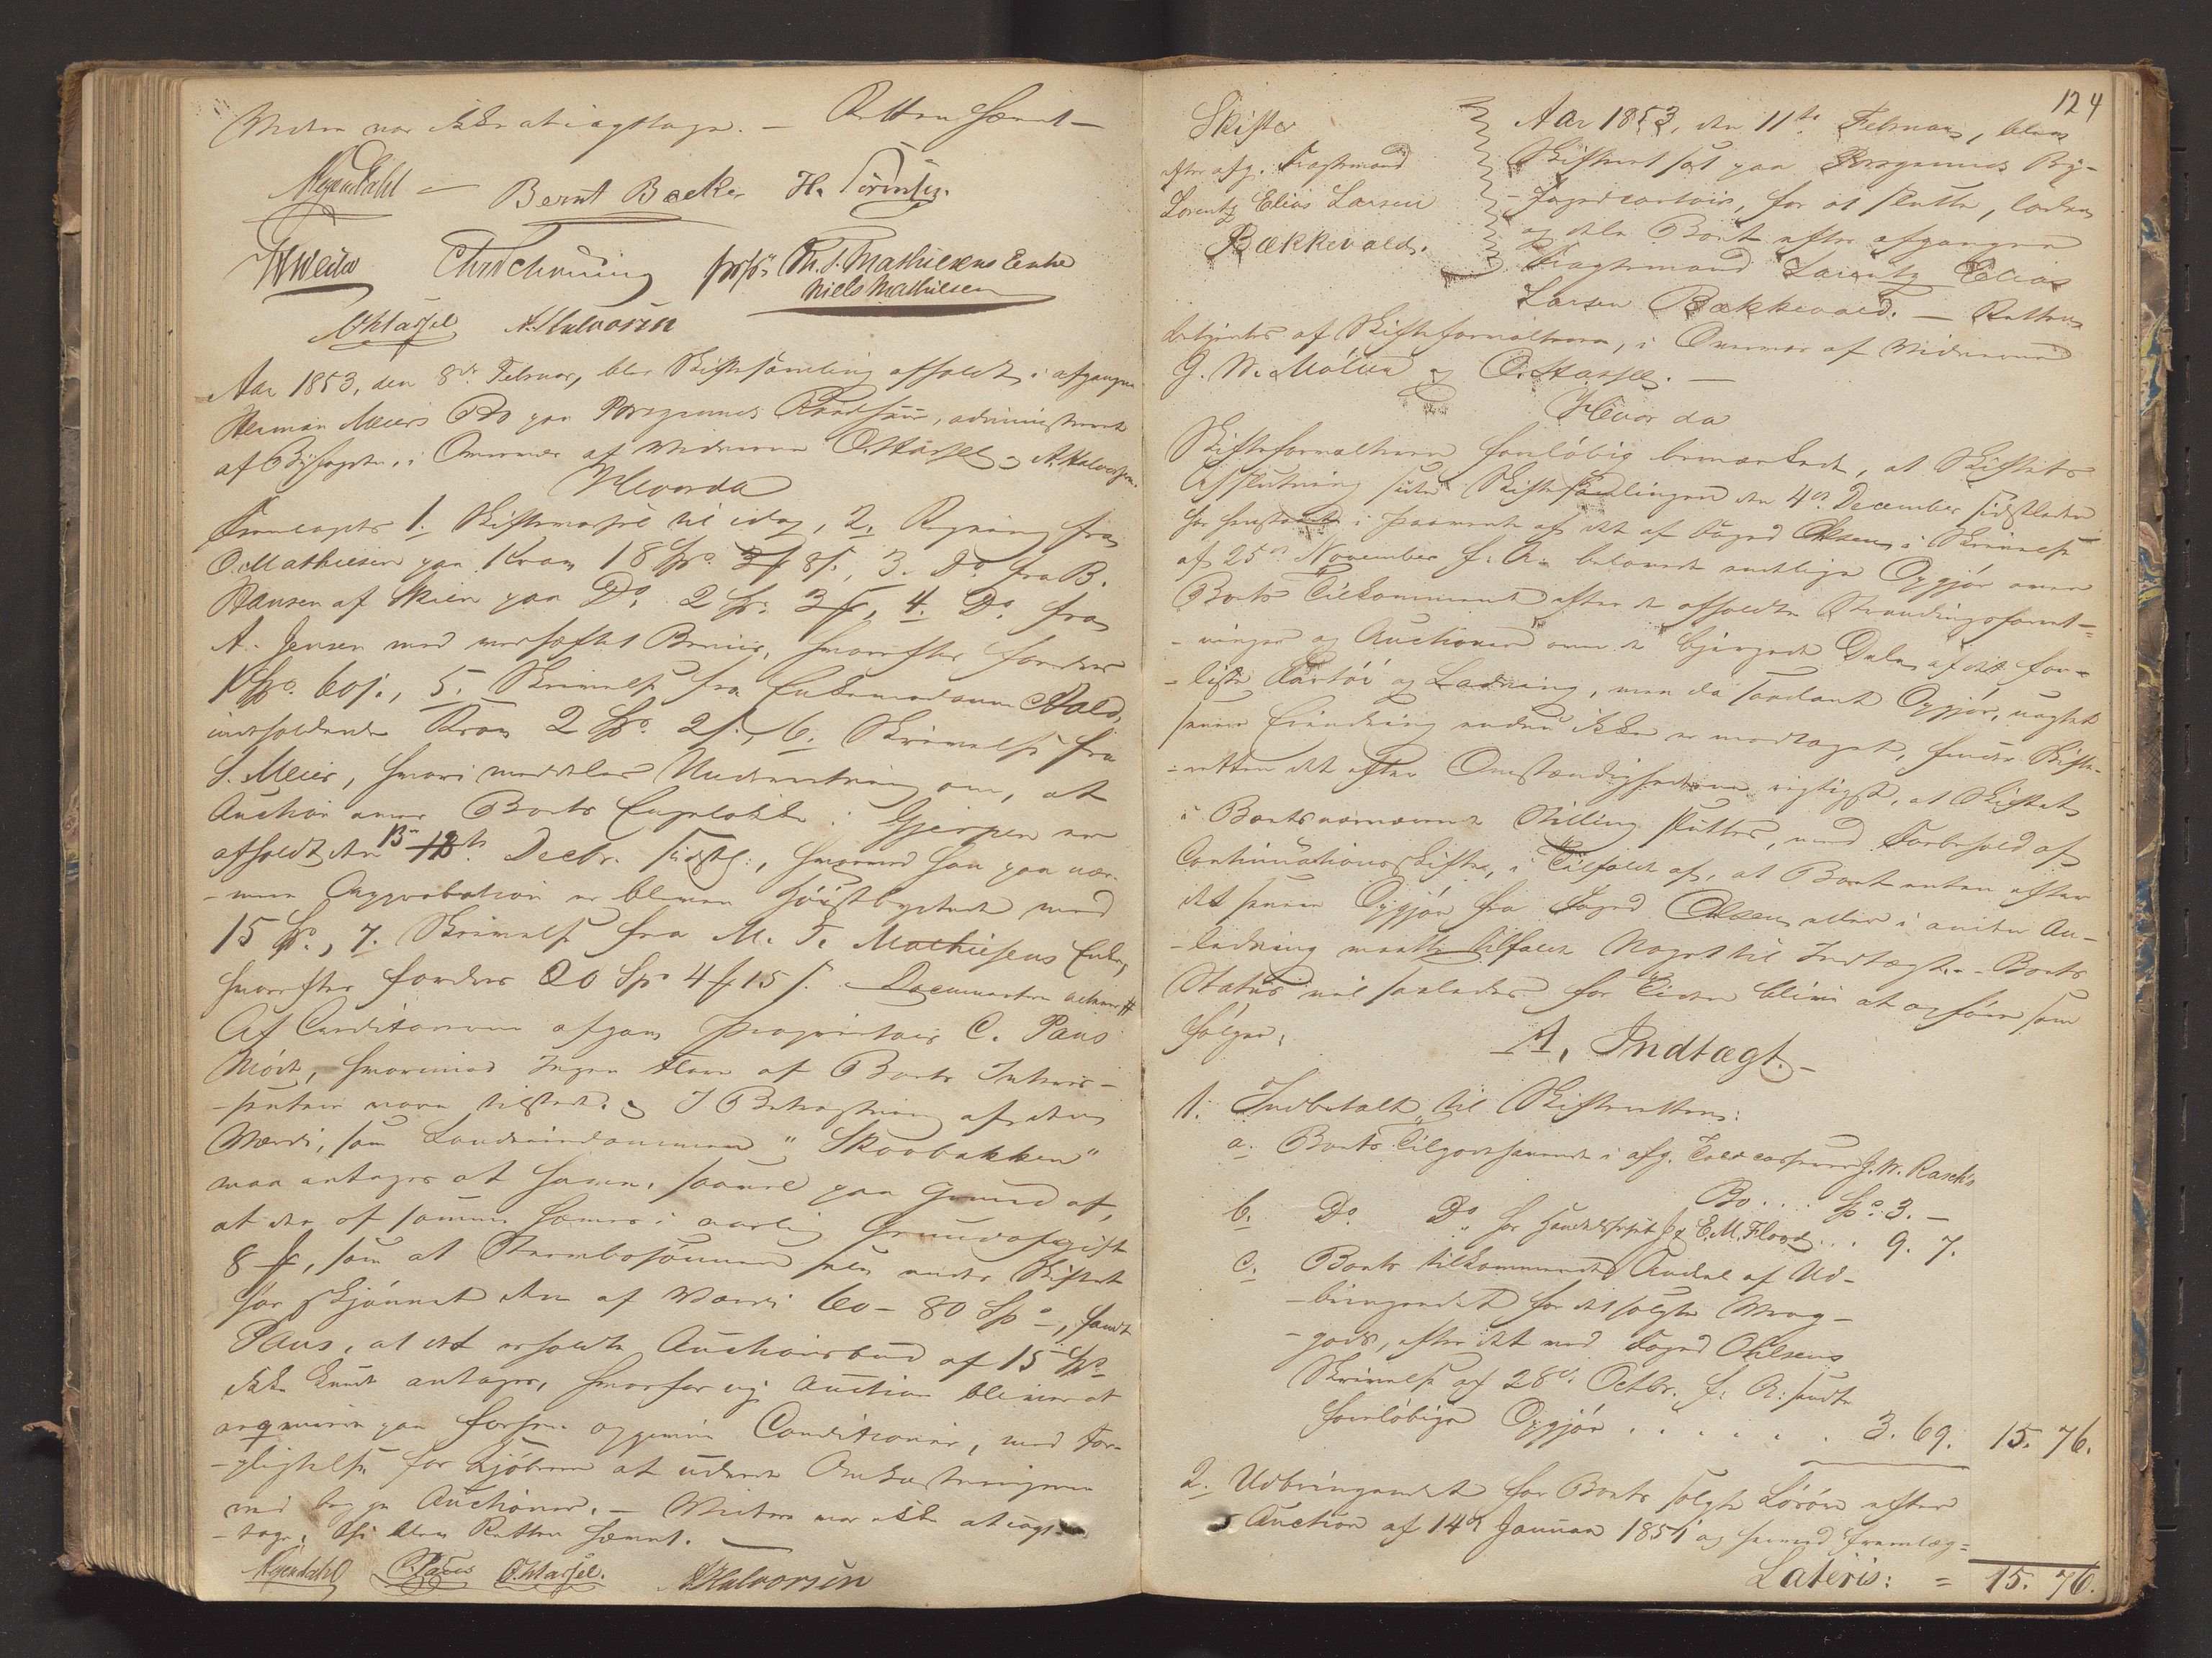 Videre var ikke at iagttage. — Retten hævet —
Bernt Backer H.
Chr Schanning Th. J. Mathiesens Enke
Niels Mathiesen
O. Hassel A. Halvorsen
Aar 1853, den 8de Februar, blev Skiftesamling afholdt i afgangne
Herman Meiers Bo paa Porsgrunds Raadhuus, administreret
af Byfogden, i Overvær af Vidnerne O. Hassel og A. Halvorsen.
Hvorda
Fremlagdes 1. Skiftemappe til idag, 2. Regning fra
O. Mathiesen paa Krav 18 Spd. 8 s., 3. Do fra B.
Hansen af Skien paa Do 2 Sp. 3 , 4. Do fra
A. Jensen med vedhæftet Beviis, hvorefter fordres
1 Spd. 60 s., 5. Skrivelse fra Enkemadame Wald,
indeholdende Krav 2 Spd. 2 , 6. Skrivelse fra
S. Meier, hvori meddeles Underretning om, at
Auction over Boets Engeløkke i Gjerpen er
afholdt den 13de Decbr. sidstl., hvorved han paa nær-
-mere Approbation er bleven høistbydende med
15 Sp., 7. Skrivelse fra M. T. Mathiesens Enke,
hvorefter fordres 20 Sp 4 15 s. Documenterne
Af Creditorerne afgav Proprietair C. Paus
Møde, hvorimod Ingen flere af Boets Interes-
-senter vare tilstede. I Betragtning af den
Værdi, som Landeiendommen "Skovbakken"
maa antages at have, saavel paa Grund af,
at der af samme svares i aarlig Grundafgift
8 , som at Stervbosønnen selv under Skiftet
har skjønnet den af Værdi 60 - 80 Spd, fandt
Paus, at det erholdte Auctionsbud af 15 Spd
ikke kunde antages, hvorfor ny Auction bliver at
reqvirere paa forhen opgivne Conditioner, med For-
-pligtelse for Kjøberen at udrede Omkostningerne
ved begge Auctioner. — Videre var ikke at iagt-
-tage, thi blev Retten hævet.
C. Paus O. Hassel. A. Halvorsen
124
Skifte
efter afg. Fragtemand
Lorentz Elias Larsen
Bækkevold.
Aar 1853, den 11te Februar, blev
Skifteret sat paa Porsgrunds By-
-fogedcontoir, for at slutte, lodne
og dele Boet efter afgangne
Fragtemand Lorentz Elias
Larsen Bækkevold. — Retten
betjentes af Skifteforvalteren, i Overvær af Vidnerne
G. W. Møller og O. Hassel. —
Hvor da
Skifteforvalteren foreløbig bemærkede, at Skiftets
Afslutning siden Skiftesamlingen den 4de December sidstleden
har henstaaet i Paavente af det af Foged Ohlsen i Skrivelse
af 25de November f: A: belovede endelige Opgjør over
Boets Tilkommende efter de afholdte Strandingsforret-
-ninger og Auctioner over de bjergede Dele af det for-
-liste Fartøi og Ladning, men da saadant Opgjør, uagtet
senere Erindring endnu ikke er modtaget, fandt Skifte-
-retten det efter Omstændighederne rigtigst, at Skiftet
i Boets nærværende Stilling sluttes, med Forbehold af
Continuationsskifte, i Tilfælde af, at Boet enten efter
det senere Opgjør fra Foged Ohlsen eller i anden An-
-ledning maatte tilfalde Noget til Indtægt. - Boets
Status vil saaledes for Tiden blive at opføre som
følger:
A, Indtægt. -
1. Indbetalt til Skifteretten:
a. Boets Tilgodehavende i afg. Toldcasserer J. W. Rasch's
Bo... Spd 3. —
b. Do Do for Handelshuset J & E. M. Flood... 9. 7.
c. Boets tilkommende Andel af Ud-
-bringendet for det solgte Vrag-
-gods, efter det med Foged Ohlsens
Skrivelse af 28de Octbr. f: A: sendte
foreløbige Opgjør . . . . . . 3. 69. 15. 76.
2. Udbringendet for Boets solgte Løsøre efter
Auction af 14de Januar 1851 og hermed fremlæg-
Lateris: = 15. 76.